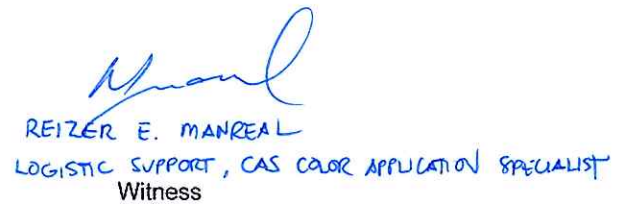 REIZER E. MANREAL
LOGISTIC SUPPORT, CAS COLOR APPLICATION SPECIALIST
Witness